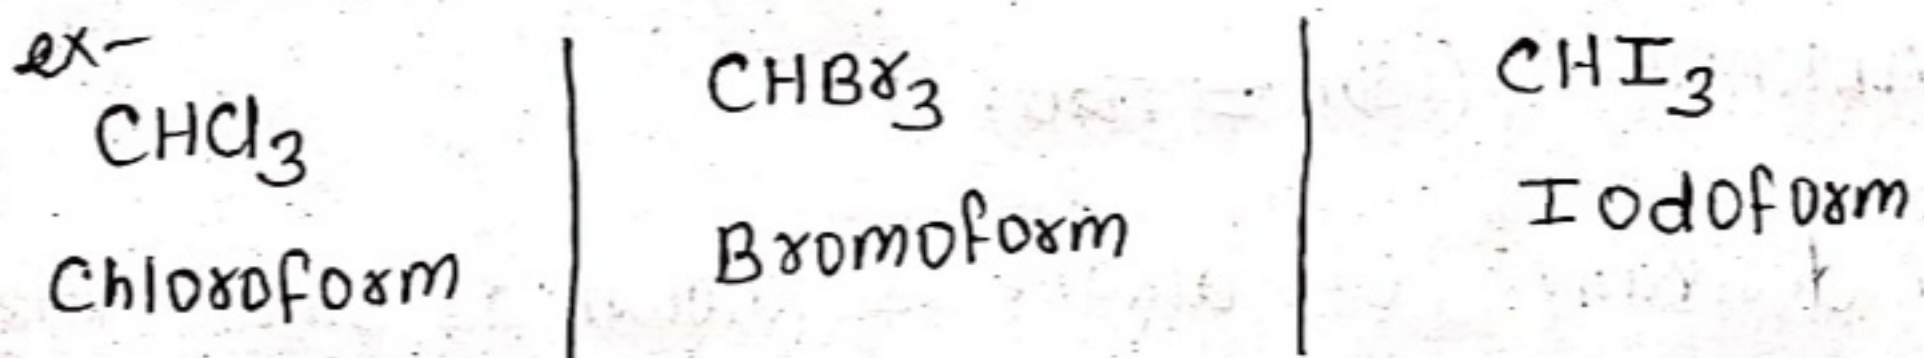 ex-
CHCl3
Chloroform
CHBr3
Bromoform
CHI3
Iodoform